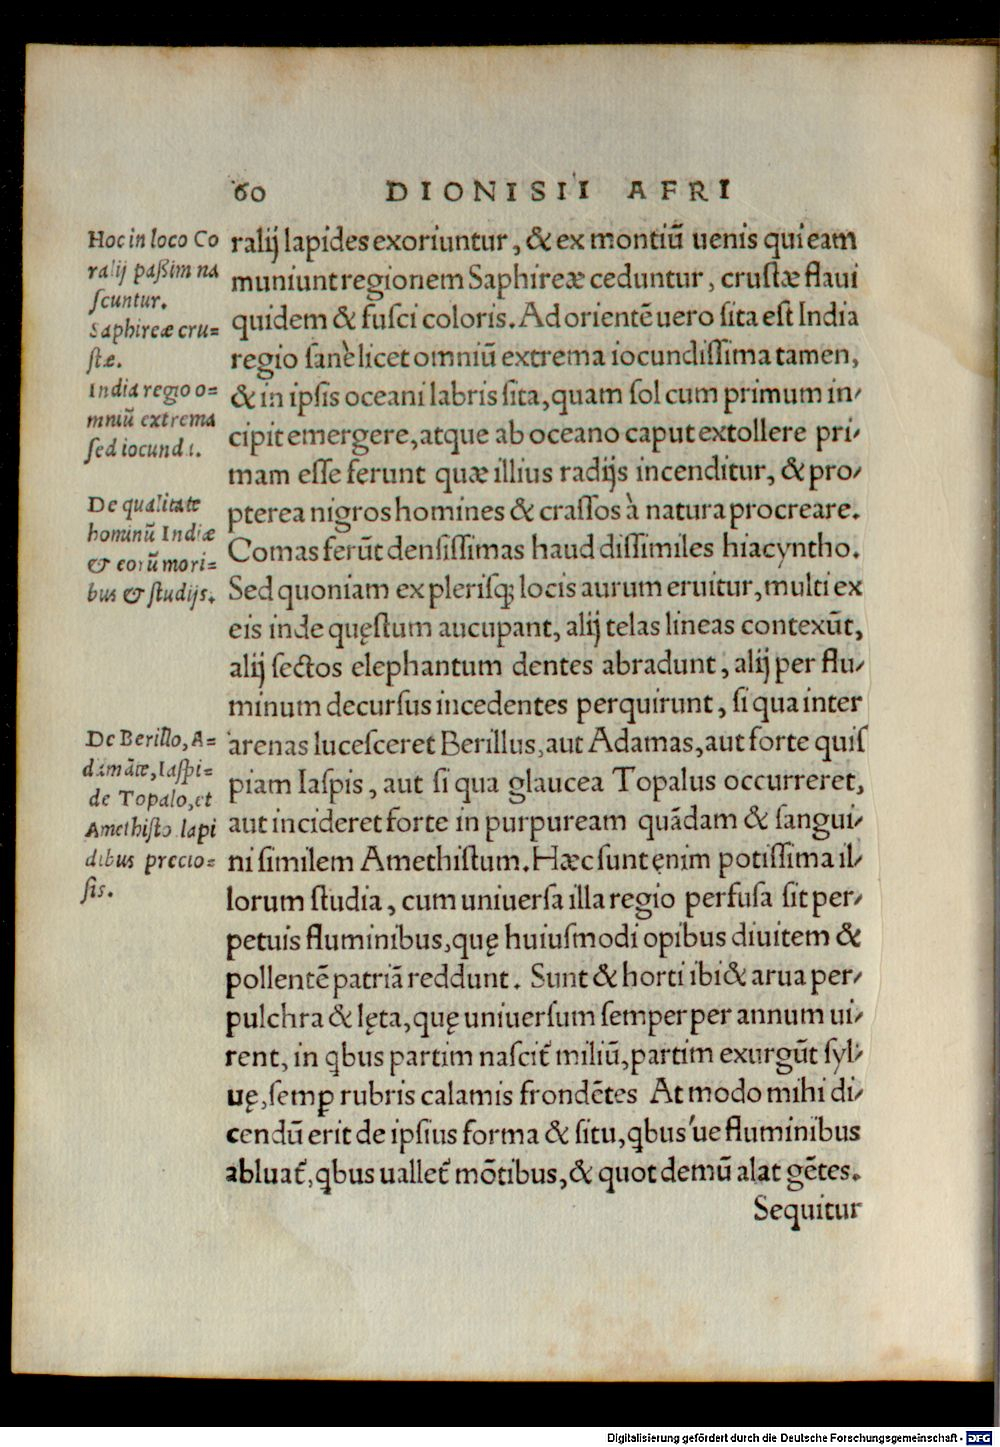 60 DIONISII AFRI
Hoc in loco Co
ralij paßim na
ſcuntur.
Saphireæ cru=
ſtæ.
India regio o=
mniū extrema
ſed iocundi.
De qualitate
hominū Indiæ
& eorū mori=
bus & ſtudijs.
De Berillo, A=
damāte, Iaſpi=
de Topalo, et
Amethiſto lapi
dibus precio=
ſis.
ralij lapides exoriuntur, & ex montiū uenis qui eam
muniunt regionem Saphireæ ceduntur, cruſtæ flaui
quidem & fuſci coloris. Ad orientē uero ſita eſt India
regio ſanè licet omniū extrema iocundiſſima tamen,
& in ipſis oceani labris ſita, quam ſol cum primum in/
cipit emergere, atque ab oceano caput extollere pri/
mam eſſe ferunt quæ illius radijs incenditur, & pro/
pterea nigros homines & craſſos à natura procreare.
Comas ferūt denſiſſimas haud diſſimiles hiacyntho.
Sed quoniam ex pleriſq; locis aurum eruitur, multi ex
eis inde quęſtum aucupant, alij telas lineas contexūt,
alij ſectos elephantum dentes abradunt, alij per flu/
minum decurſus incedentes perquirunt, ſi qua inter
arenas luceſceret Berillus, aut Adamas, aut forte quiſ
piam Iaſpis, aut ſi qua glaucea Topalus occurreret,
aut incideret forte in purpuream quādam & ſangui/
ni ſimilem Amethiſtum. Hæc ſunt ęnim potiſſima il/
lorum ſtudia, cum uniuerſa illa regio perfuſa ſit per/
petuis fluminibus, quę huiuſmodi opibus diuitem &
pollentē patriā reddunt. Sunt & horti ibi & arua per/
pulchra & lęta, quę uniuerſum ſemper per annum ui/
rent, in qbus partim naſcit̃ miliū, partim exurgūt ſyl/
uę, ſemꝑ rubris calamis frondētes At modo mihi di/
cendū erit de ipſius forma & ſitu, qbus 've fluminibus
abluat̃, qbus uallet̃ mōtibus, & quot demū alat gētes.
Sequitur
Digitalisierung gefördert durch die Deutsche Forschungsgemeinschaft - DFG